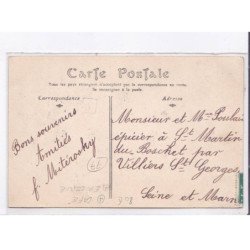 Carte Postale
Tous les pays étrangers n'acceptent pas la correspondance au recto.
Se renseigner à la poste.
Correspondance
Adresse
Bons souvenirs
Amitiés
f. Miterosky
Monsieur et Mme Poulain
épicier à St Martin
du Boschet par
Villiers St Georges
Seine et Marne
77